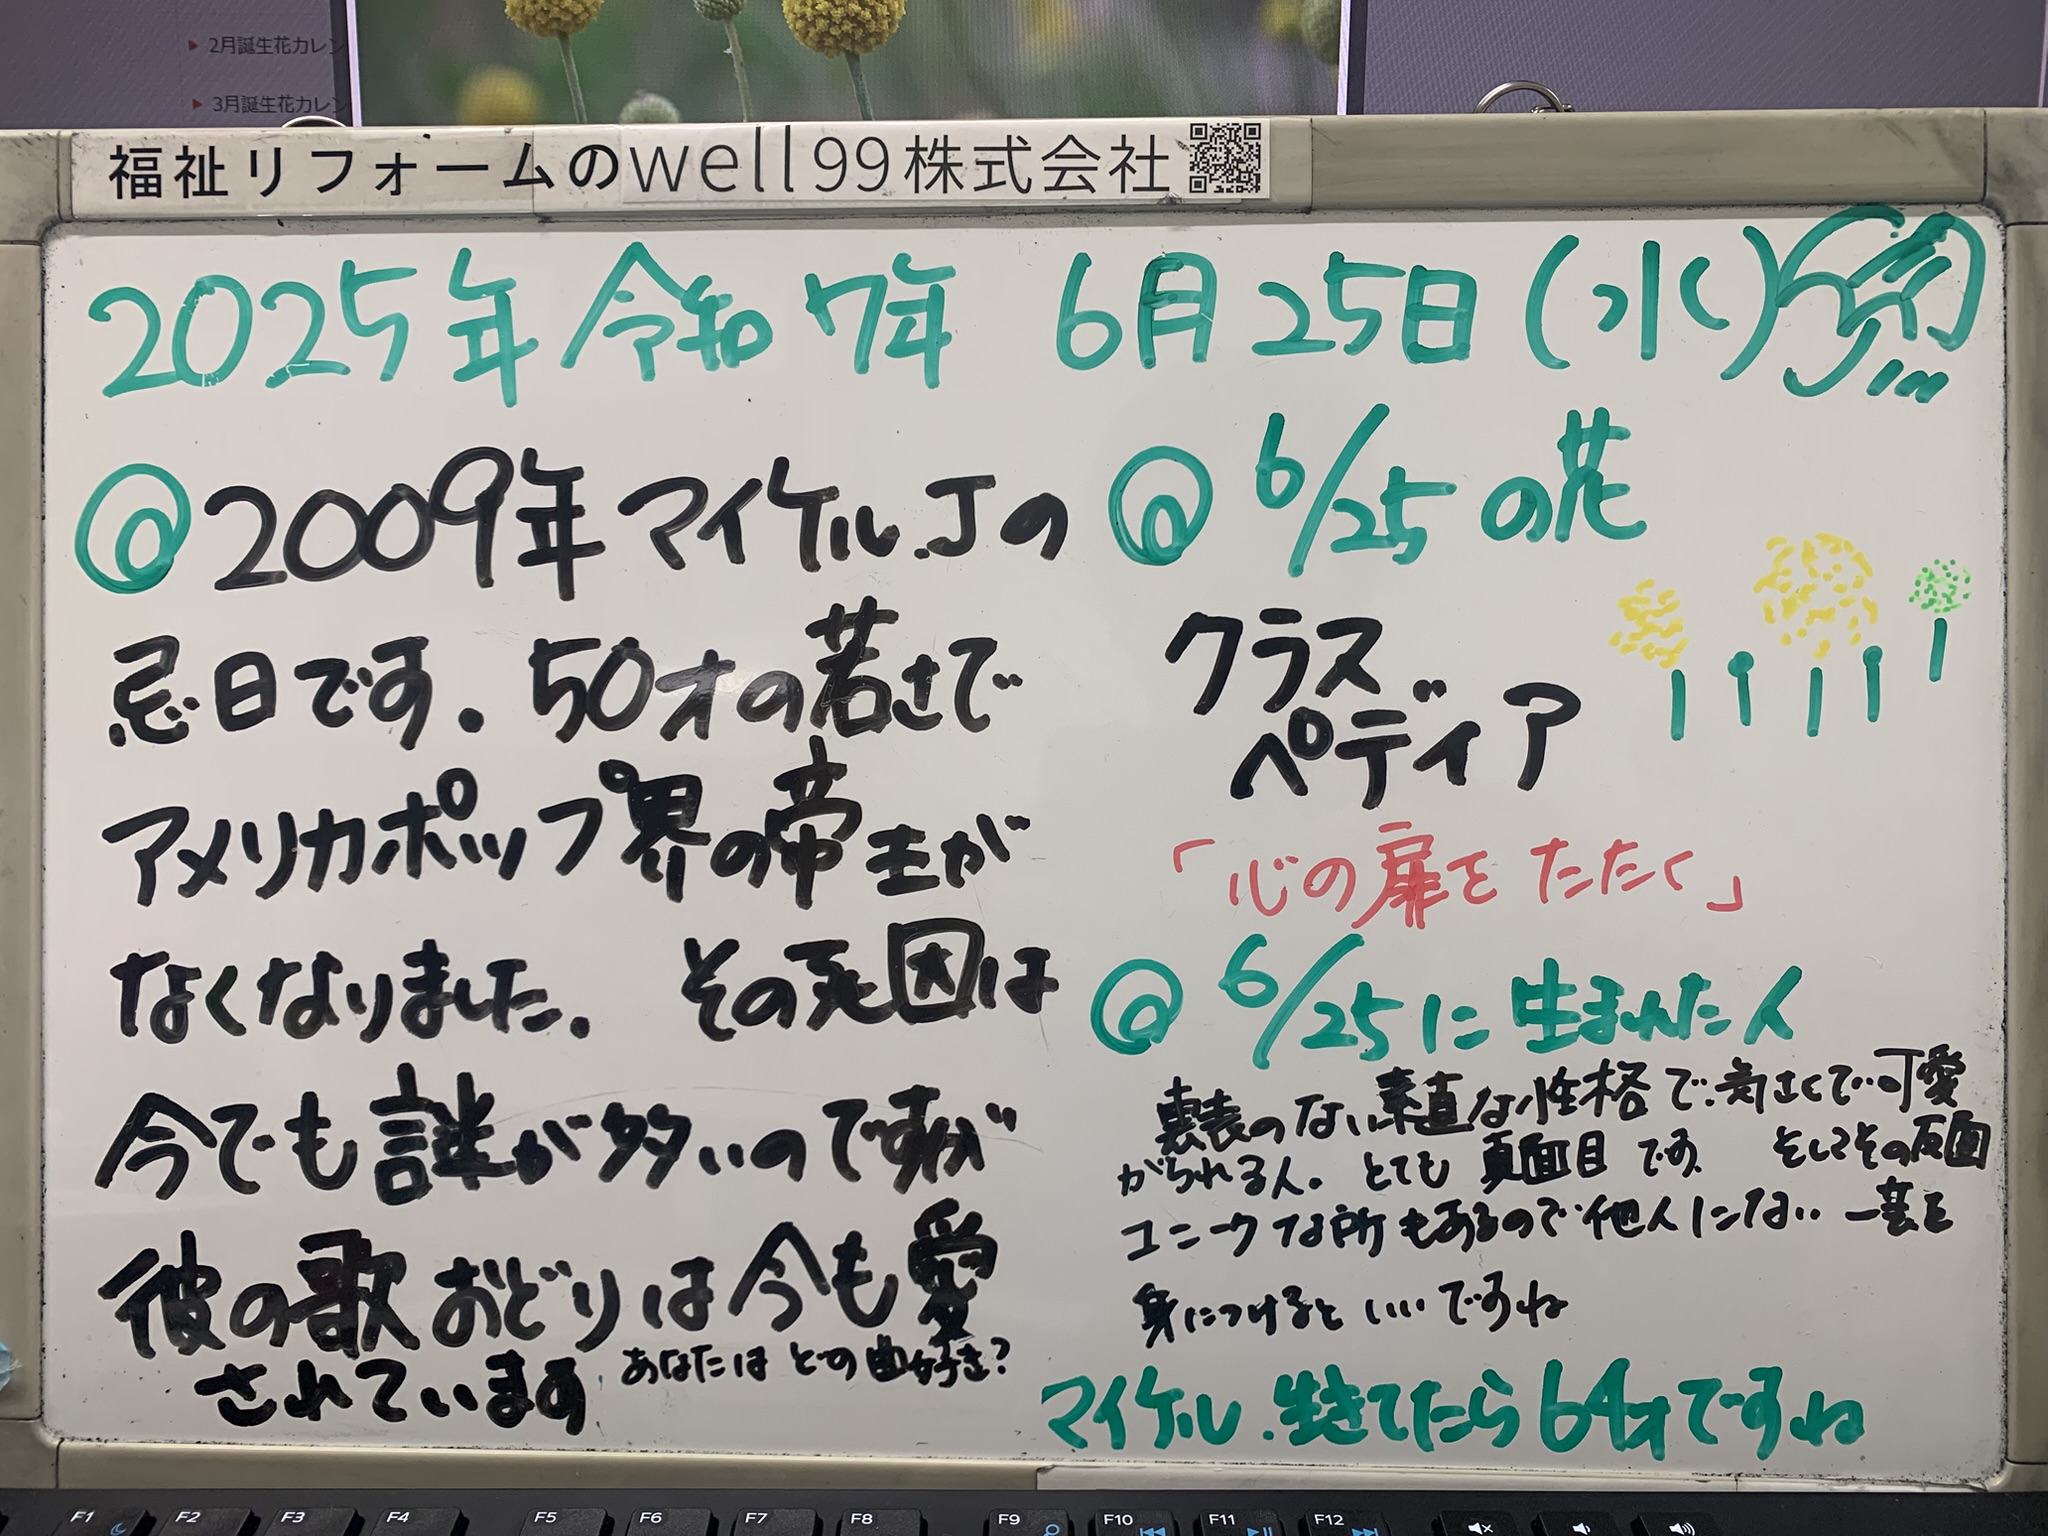 ▶ 2月誕生花カレン
▶ 3月誕生花カレン
福祉リフォームのwell99株式会社
2025年 令和7年 6月25日(水)
@2009年マイケル.Jの
忌日です. 50才の若さで
アメリカポップ界の帝王が
なくなりました. その死因は
今でも謎が多いのですが
彼の歌おどりは今も愛
されています あなたはどの曲好き?
@ 6/25の花
クラス
ペディア
「心の扉をたたく」
@ 6/25に生まれた人
裏表のない素直な性格で.気さくで可愛
がられる人。とても真面目です. そしてその反面
ユニークな所もあるので他人にない一芸を
身につけるといいですね
マイケル.生きてたら64才ですね
F1 F2 F3 F4 F5 F6 F7 F8 F9 F10 F11 F12